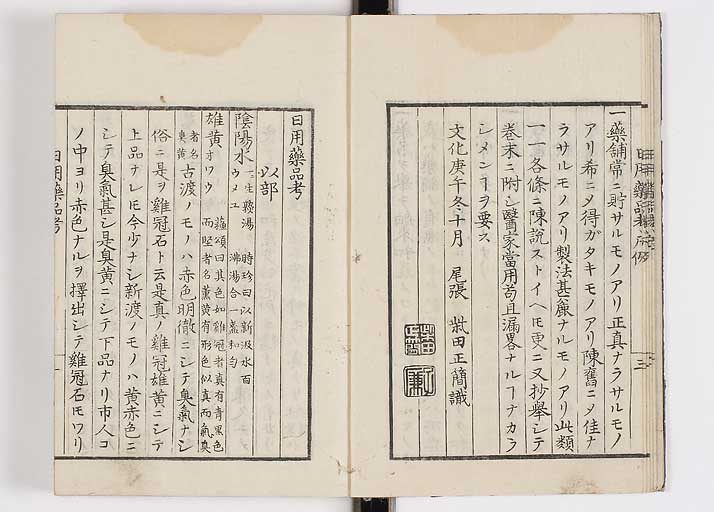 一藥舗常ニ貯サルモノアリ正真ナラサルモノ
アリ希ニメ得ガタキモノアリ陳舊ニメ佳ナ
ラサルモノアリ製法甚麁ナルモノアリ此類
一一各條ニ陳說ストイヘ𪜈更ニ又抄舉シテ
巻末ニ附シ醫家當用苟且漏畧ナルヿナカラ
シメンヿヲ要ス
文化庚午冬十月 尾張 柴田正簡識
日用藥品考
以部
陰陽水 一生熟湯 時珍曰以新汲水百
ウメユ 沸湯合一盞和勻
雄黃 オワウ 蘓頌曰其色如雞冠者真有青黑色
而堅者名薰黃有形色似真而氣臭
者名臭黃 古渡ノモノハ赤色明徹ニシテ臭氣ナシ
俗ニ是ヲ雞冠石ト云是真ノ雞冠雄黃ニシテ
上品ナレ𪜈今少ナシ新渡ノモノハ黃赤色ニ
シテ臭氣甚シ是臭黃ニシテ下品ナリ市人コ
ノ中ヨリ赤色ナルヲ擇出シテ雞冠石𪜈ワリ
日用藥品考